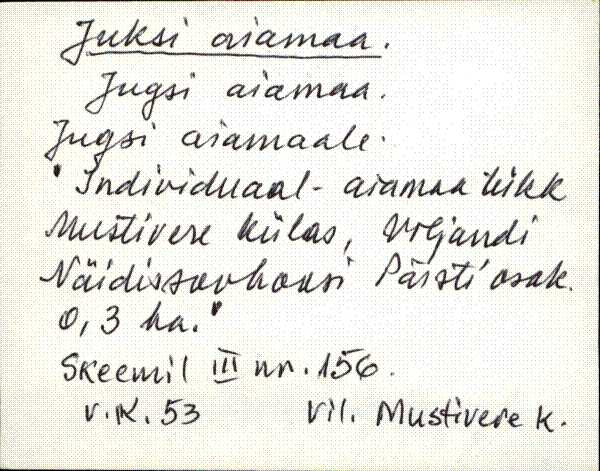 Juksi aiamaa.
Jugsi aiamaa.
Jugsi aiamaale.
"Individuaal-aiamaa tükk
Mustivere külas, Viljandi
Näidissovhoosi Päristi osak.
0,3 ha."
Skeemil III nr. 156.
v.K. 53 Vil. Mustivere k.